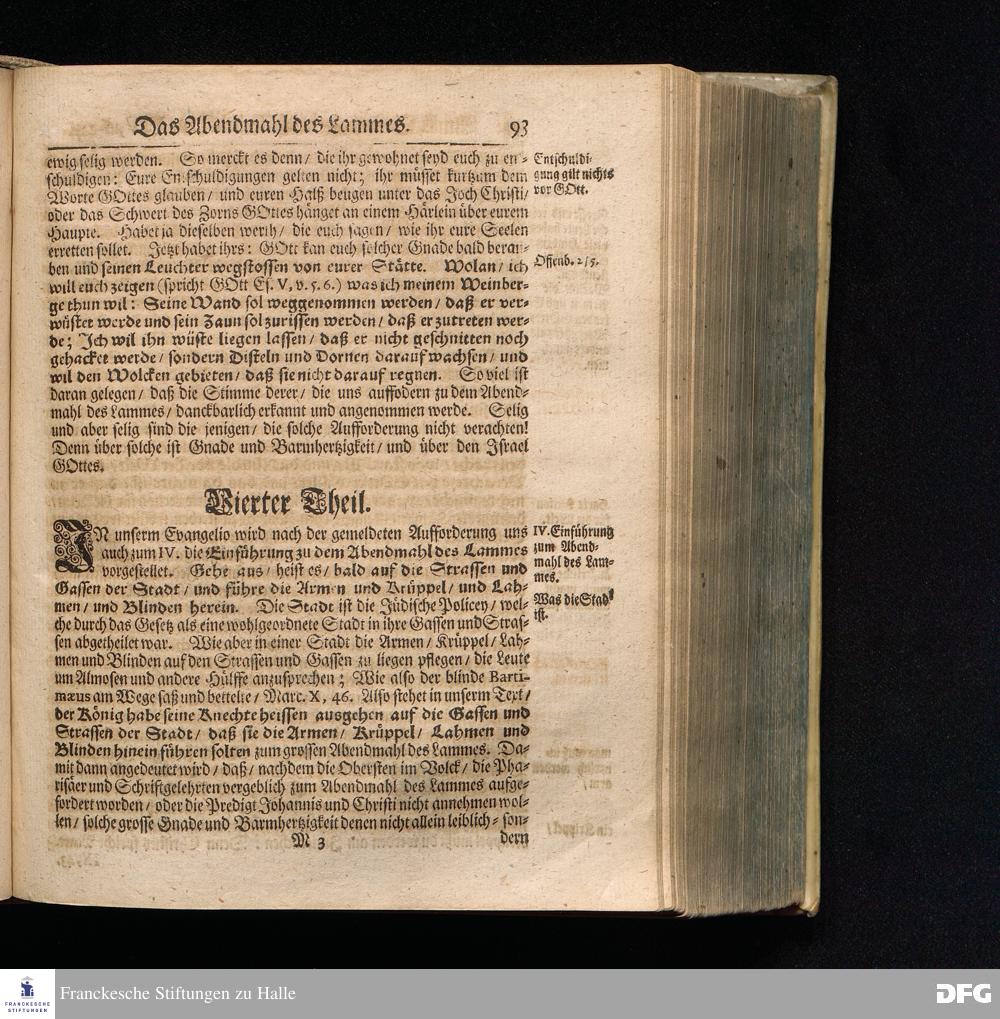 Das Abendmahl des Lammes. 93
ewig selig werden. So merckt es denn / die ihr gewohnet seyd euch zu en-
schuldigen: Eure Entschuldigungen gelten nicht; ihr müsset kurtzum dem
Worte GOttes glauben / und euren Halß beugen unter das Joch Christi /
oder das Schwert des Zorns GOttes hänget an einem Härlein über eurem
Haupte. Habet ja dieselben werth / die euch sagen / wie ihr eure Seelen
erretten sollet. Jetzt habet ihrs: GOtt kan euch solcher Gnade bald berau-
ben und seinen Leuchter wegstossen von eurer Stätte. Wolan / ich
will euch zeigen (spricht GOtt Es. V, v. 5. 6.) was ich meinem Weinber-
ge thun wil: Seine Wand sol weggenommen werden / daß er ver-
wüstet werde und sein Zaun sol zurissen werden / daß er zutreten wer-
de; Ich wil ihn wüste liegen lassen / daß er nicht geschnitten noch
gehacket werde / sondern Disteln und Dornen darauf wachsen / und
wil den Wolcken gebieten / daß sie nicht darauf regnen. So viel ist
daran gelegen / daß die Stimme derer / die uns auffodern zu dem Abend-
mahl des Lammes / danckbarlich erkannt und angenommen werde. Selig
und aber selig sind die jenigen / die solche Aufforderung nicht verachten!
Denn über solche ist Gnade und Barmhertzigkeit / und über den Israel
GOttes.
Entschuldi-
gung gilt nichts
vor GOtt.
Offenb. 2 / 5.
Vierter Theil.
IN unserm Evangelio wird nach der gemeldeten Aufforderung uns
auch zum IV. die Einführung zu dem Abendmahl des Lammes
vorgestellet. Gehe aus / heist es / bald auf die Strassen und
Gassen der Stadt / und führe die Armen und Krüppel / und Lah-
men / und Blinden herein. Die Stadt ist die Jüdische Policey / wel-
che durch das Gesetz als eine wohlgeordnete Stadt in ihre Gassen und Stras-
sen abgetheilet war. Wie aber in einer Stadt die Armen / Krüppel / Lah-
men und Blinden auf den Strassen und Gassen zu liegen pflegen / die Leute
um Almosen und andere Hülffe anzusprechen; Wie also der blinde Barti-
mæus am Wege saß und bettelte / Marc. X, 46. Also stehet in unserm Text /
der König habe seine Knechte heissen ausgehen auf die Gassen und
Strassen der Stadt / daß sie die Armen / Krüppel / Lahmen und
Blinden hinein führen solten zum grossen Abendmahl des Lammes. Da-
mit dann angedeutet wird / daß / nachdem die Obersten im Volck / die Pha-
risäer und Schriftgelehrten vergeblich zum Abendmahl des Lammes aufge-
fordert worden / oder die Predigt Johannis und Christi nicht annehmen wol-
len / solche grosse Gnade und Barmhertzigkeit denen nicht allein leiblich- son-
M 3 dern
IV. Einführung
zum Abend-
mahl des Lam-
mes.
Was die Stadt
ist.
Franckesche Stiftungen zu Halle
FRANCKESCHE
STIFTUNGEN
DFG